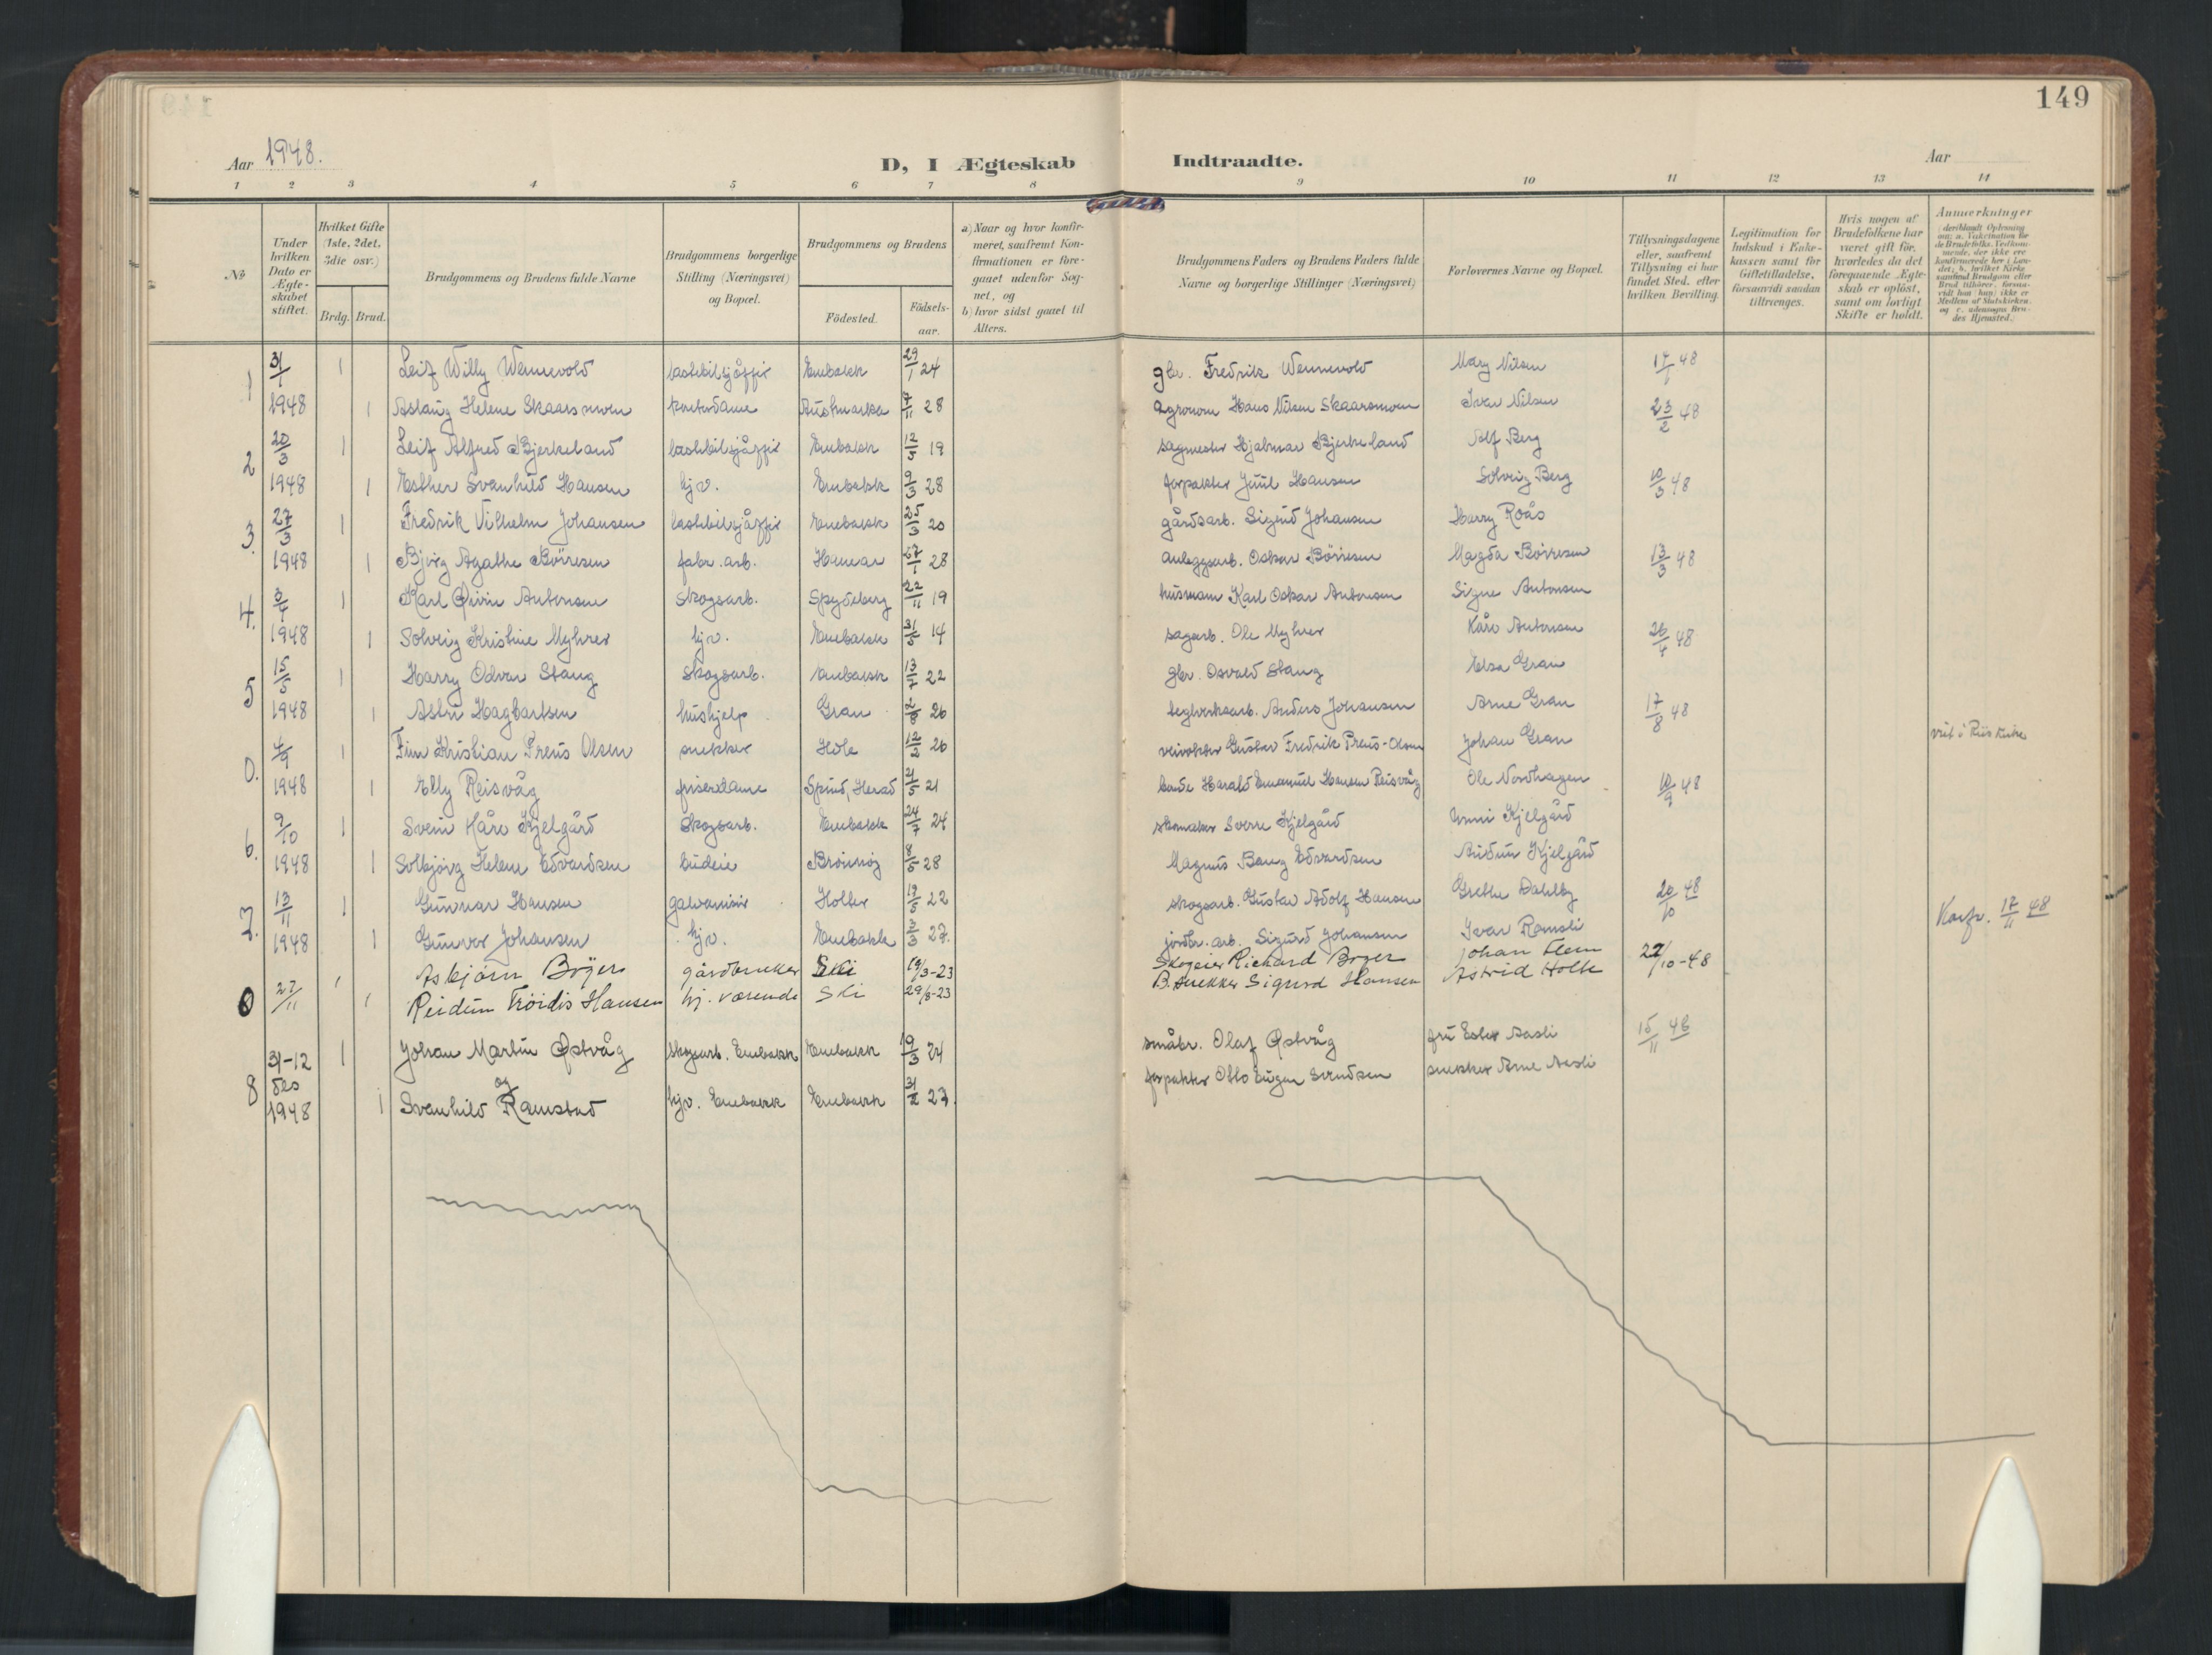 149
Aar 1948.
D, I Ægteskab Indtraadte.
Aar
1 2 3 4 5 6 7 8 9 10 11 12 13 14
No
Under hvilken Dato er Ægteskabet stiftet.
Hvilket Gifte (1ste, 2det, 3die osv.)
Brdg. Brud.
Brudgommens og Brudens fulde Navne
Brudgommens borgerlige Stilling (Næringsvei) og Bopæl.
Brudgommens og Brudens
Födested.
Födselsaar.
a) Naar og hvor konfirmeret, saafremt Konfirmationen er foregaaet udenfor Sognet, og
b) hvor sidst gaaet til Alters.
Brudgommens Faders og Brudens Faders fulde Navne og borgerlige Stillinger (Næringsvei)
Forlovernes Navne og Bopæl.
Tillysningsdagene eller, saafremt Tillysning ei har fundet Sted, efter hvilken Bevilling.
Legitimation for Indskud i Enkekassen samt for Giftetilladelse, forsaavidt saadan tiltrænges.
Hvis nogen af Brudefolkene har været gift för, hvorledes da det foregaaende Ægteskab er oplöst, samt om lovligt Skifte er holdt.
Anmærkninger
1 31/1 1 Leif Willy Wennevold lastebilsjåffør Enebakk 29/1 24 gbr. Fredrik Wennevold Mary Nilsen 14/1 48
1948 1 Aslaug Helene Skaarsmoen kontordame Austmarka 7/11 28 agronom Hans Nilsen Skaarsmoen Ivar Nilsen 23/2 48
2 20/3 1 Leif Alfred Bjerkeland lastebilsjåffør Enebakk 12/5 19 sagmester Hjalmar Bjerkeland Alf Berg
1948 1 Esther Svanhild Hansen hjv. Enebakk 9/3 28 forpakter Juul Hansen Solveig Berg 10/3 48
3. 27/3 1 Fredrik Vilhelm Johansen lastebilsjåffør Enebakk 25/3 20 gårdsarb. Sigurd Johansen Harry Roås
1948 1 Bjørg Agathe Börresen fabr. arb. Hamar 27/1 28 anleggsarb. Oskar Börresen Magda Börresen 13/3 48
4. 3/4 1 Karl Øivin Antonsen skogsarb. Spydeberg 22/11 19 husmann Karl Oskar Antonsen Signe Antonsen
1948 1 Solveig Kristine Myhrer hjv. Enebakk 31/5 14 sagarb. Ole Myhrer Kåre Antonsen 26/4 48
5 15/5 1 Harry Odvar Stang skogsarb. Enebakk 13/7 22 gbr. Osvald Stang Elsa Gran
1948 1 Aslri Hagbartsen hushjelp Gran 2/8 26 teglverksarb. Anders Johansen Arne Gran 17/8 48
0. 4/9 1 Finn Kristian Preus Olsen snekker Hole 12/2 26 veivokter Gustav Fredrik Preus-Olsen Johan Gran
1948 1 Elly Reisvåg friserdame Spind, Herad 21/5 21 bonde Harald Emanuel Hansen Reisvåg Ole Nordhagen 10/9 48
6. 9/10 1 Svein Kåre Kjelgård skogsarb. Enebakk 24/7 24 skomaker Sverre Kjelgård Unni Kjelgård
1948 1 Solbjørg Helene Edvardsen budeie Brönnöy 8/5 28 Magnus Bang Edvardsen Audun Kjelgård
7. 13/11 1 Gunnar Hansen galvanisör Holter 19/5 22 skogsarb. Gustav Adolf Hansen Grethe Dahlby 20/10 48 Konfr. 17/11 48
1948 1 Gunvor Johansen hjv. Enebakk 3/3 27. jordbr. arb. Sigurd Johansen Ivar Ramsli
0 27/11 1 Asbjörn Bøjer gårdbruker Ski 19/3-23 Skogeier Richard Bøjer Johan Flem 22/10-48
1 Reidun Tröidis Hansen hj. værende Ski 29/8-23 B. snekker Sigurd Hansen Astrid Holth
8 31-12 1 Johan Martin Østvåg skogsarb. Enebakk Enebakk 19/3 24 småbr. Olaf Østvåg fru Ester Aasli 15/11 48
des og
1948 1 Svanhild Ramstad hjv. Enebakk Enebakk 23. forpakter Otto Eugen Svendsen snekker Arne Aasli